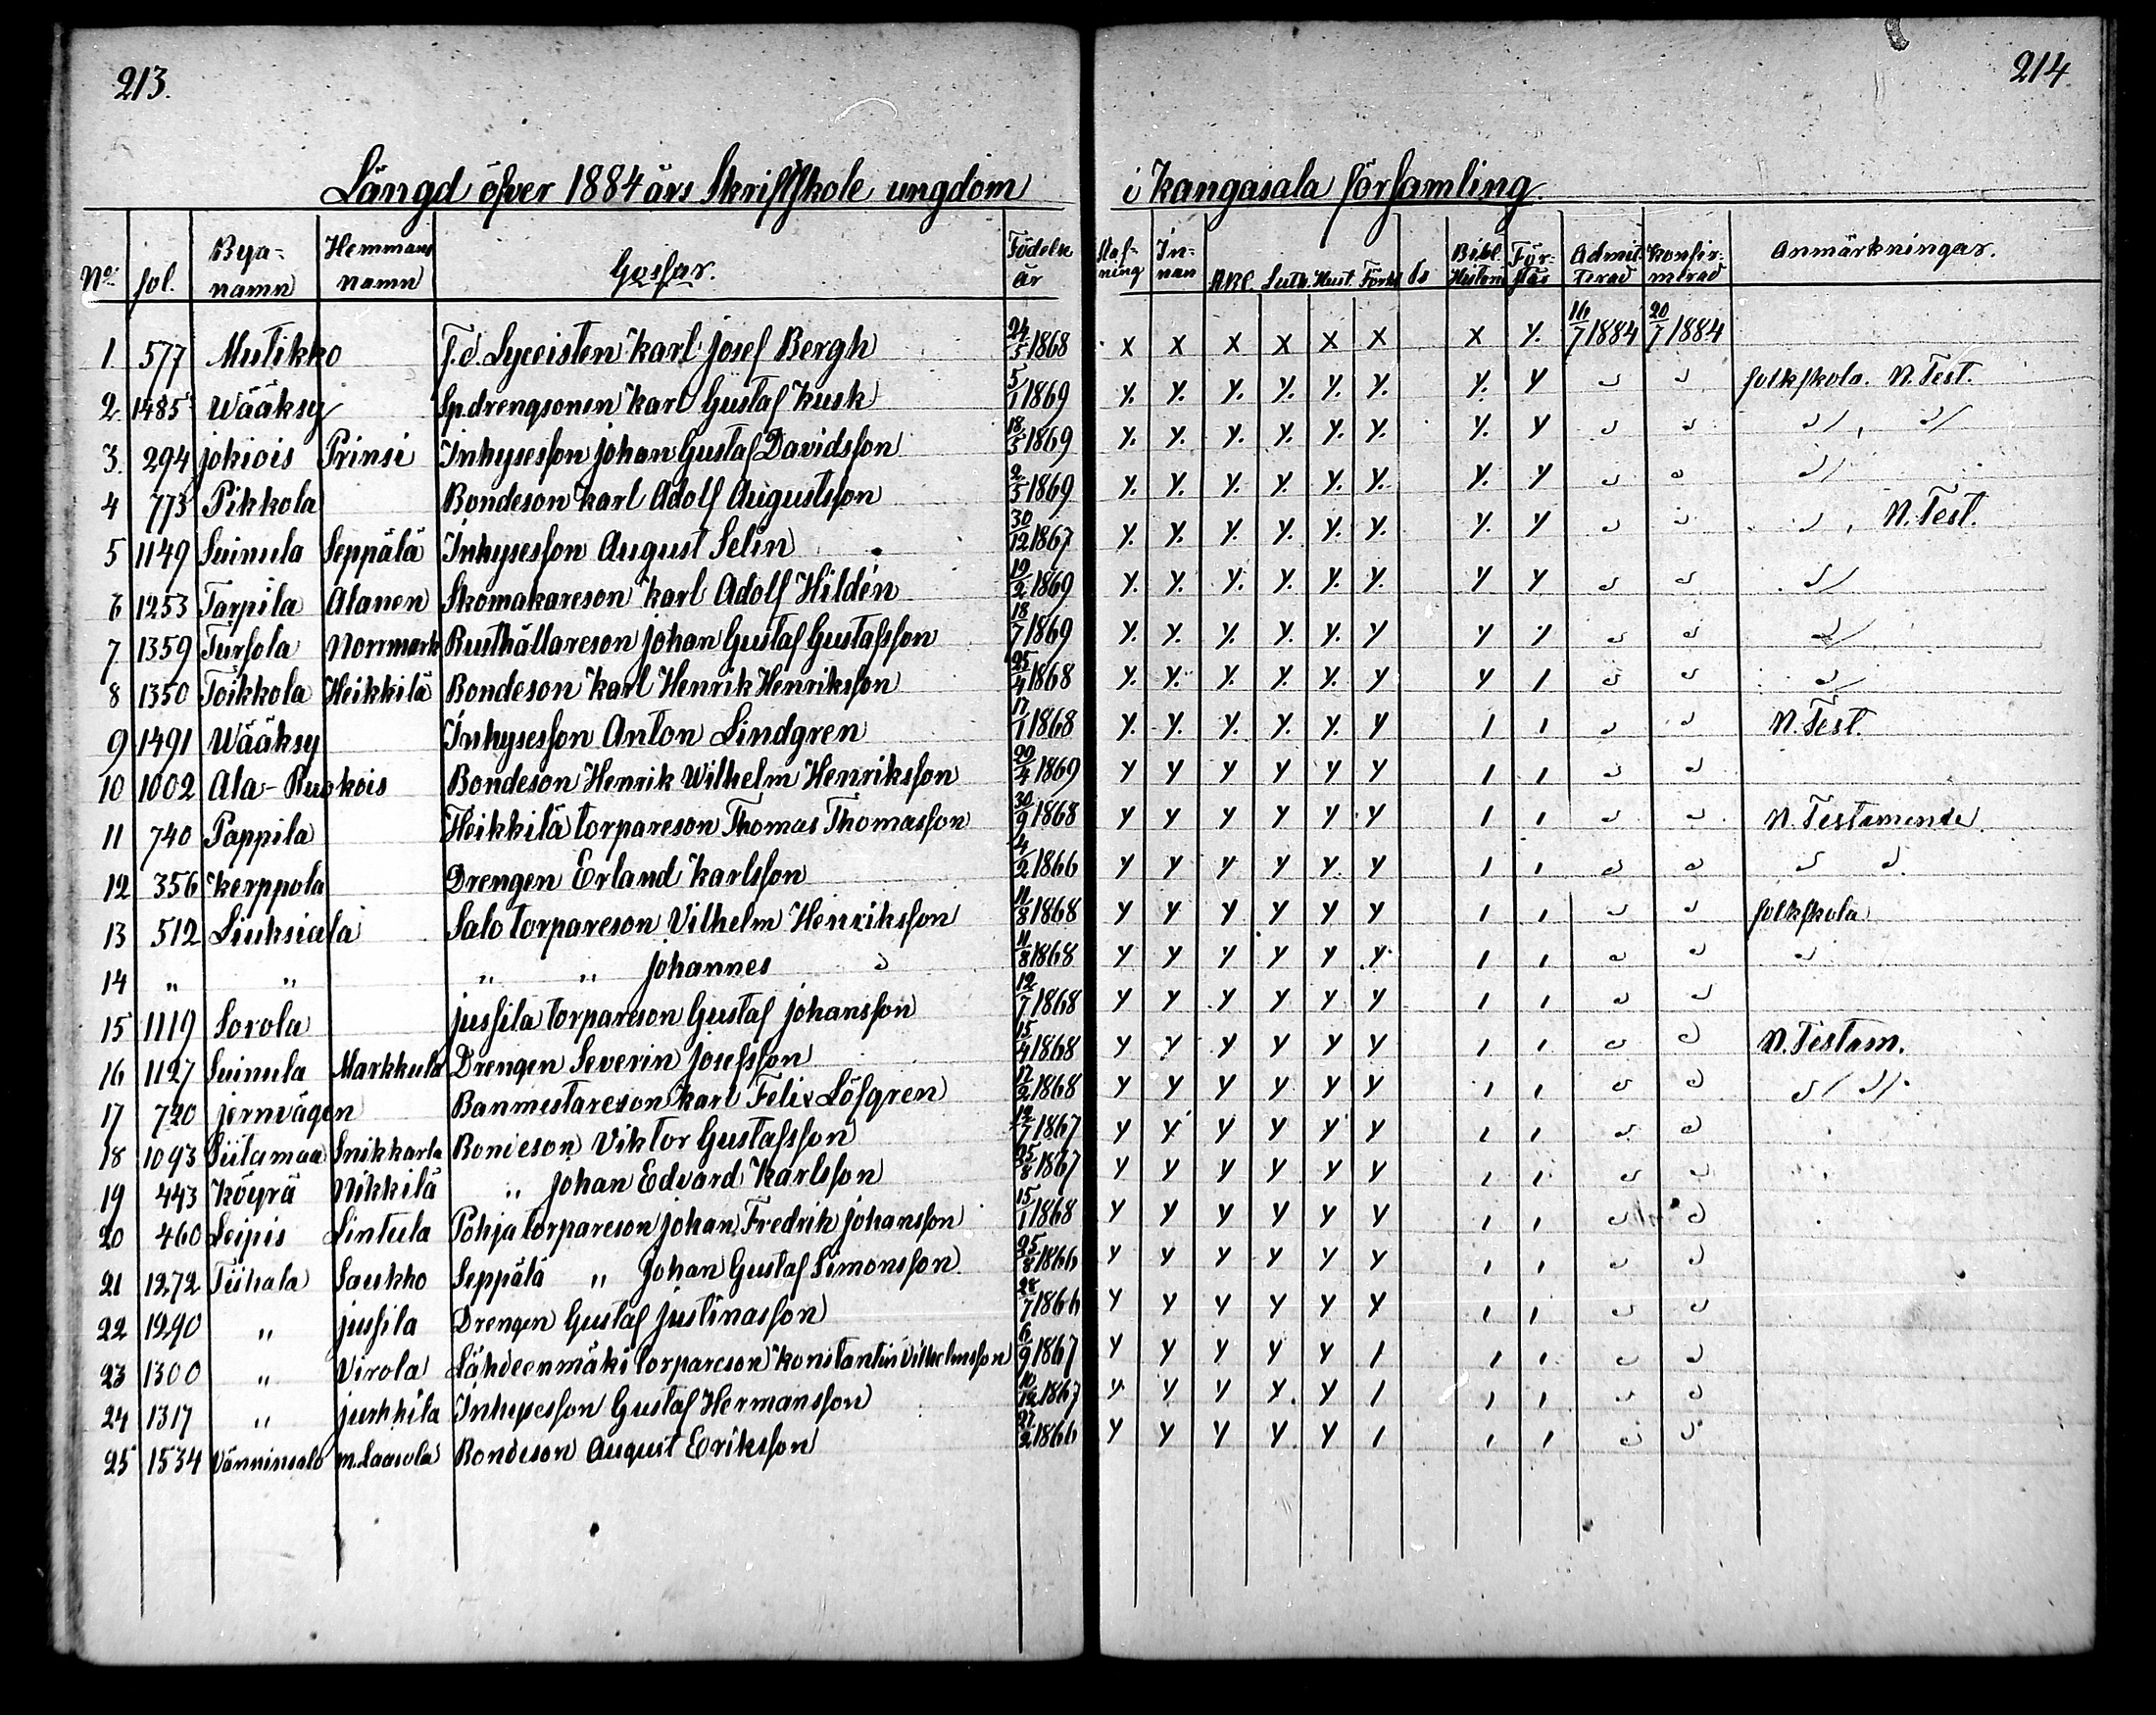 213.
214
Längd öfver 1884 års Skriftskole ungdom i Kangasala församling.
No. fol. Bya-namn Hemmans namn Gossar. Födelse år Staf-ning In-nan ABC. Luth. Hust. Förkl. Ds Bibl. Historia För-stås Admit-terad Konfir-merad Anmärkningar.
1 577 Mutikko F.d. Lyceisten Karl Josef Bergh 24/5 1868 x x x x x x x y. 16/7 1884 20/7 1884
2. 1485 Wääksy Spdrengsonen Karl Gustaf Kusk 5/1 1869 y. y. y. y. y. y. y. y " " folkskola. N. Test.
3. 294 Johiois Prinsi Inhysesson Johan Gustaf Davidsson 18/5 1869 y. y. y. y. y. y. y. y " " " , "
4 773 Pikkola Bondeson Karl Adolf Augustsson 2/5 1869 y. y. y. y. y. y. y. y " " "
5 1149 Suinula Seppälä Inhysesson August Selin 30/12 1867 y. y. y. y. y. y. y. y " " " , N. Test.
6 1253 Tarpila Alanen Skomakareson Karl Adolf Hildén 19/2 1869 y. y. y. y. y. y. y y " " "
7 1359 Tursola Norrmark Rusthållareson Johan Gustaf Gustafsson 18/7 1869 y. y. y. y. y. y y y " " "
8 1350 Toikkola Heikkilä Bondeson Karl Henrik Henriksson 25/4 1868 y. y. y. y. y. y y / " " "
9 1491 Wääksy Inhysesson Anton Lindgren 17/1 1868 y. y. y. y. y. y / / " " N. Test.
10 1002 Ala-Ruokois Bondeson Henrik Wilhelm Henriksson 29/4 1869 y y y y y y / / " "
11 740 Pappila Heikkilä torpareson Thomas Thomasson 30/9 1868 y y y y y y / / " " N. Testamende
12 356 Kerppola Drengen Erland Karlsson 4/2 1866 y y y y y y / / " " " "
13 512 Liuksiala Salo torpareson Vilhelm Henriksson 11/8 1868 y y y y y y / / " " folkskola
14 " " " " Johannes " 11/8 1868 y y y y y y / / " " "
15 1119 Sorola Jussila torpareson Gustaf Johansson 12/7 1868 y y y y y y / / " "
16 1127 Suinula Markkula Drengen Severin Josefsson 15/4 1868 y y y y y y / / " " N. Testam.
17 720 Jernvägen Banmestareson Karl Felix Löfgren 12/2 1868 y y y y y y / / " " " "
18 1093 Siitamaa Snikkarla Bondeson Viktor Gustafsson 12/7 1867 y y y y y y / / " "
19 443 Köyrä Nikkilä " Johan Edvard Karlsson 25/8 1867 y y y y y y / / " "
20 460 Leipis Lintula Pohja torpareson Johan Fredrik Johansson 15/1 1868 y y y y y y / / " "
21 1272 Tiihala Saukko Seppälä " Johan Gustaf Simonsson 25/8 1866 y y y y y y / / " "
22 1290 " Jussila Drengen Gustaf Justinasson 28/7 1866 y y y y y y / / " "
23 1300 " Virola Lähdeenmäki torpareson Konstantin Vilhelmsson 6/9 1867 y y y y y / / / " "
24 1317 " Jurkkila Inhysesson Gustaf Hermansson 10/12 1867 y y y y y / / / " "
25 1534 Vänninsalo m. Laasola Bondeson August Eriksson 27/2 1866 y y y y y / / / " "